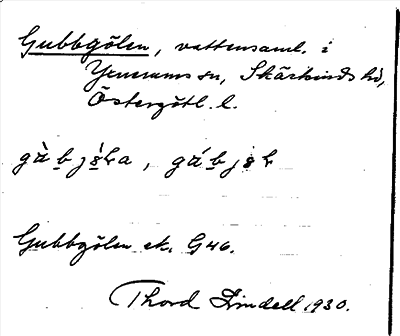 Gubbgölen, vattensaml. i
Yxnerums sn, Skärkinds hd,
Östergötl. l.
gȧ̀ b j
Gubbgölen ek. G46.
Thord Lindell 1930.